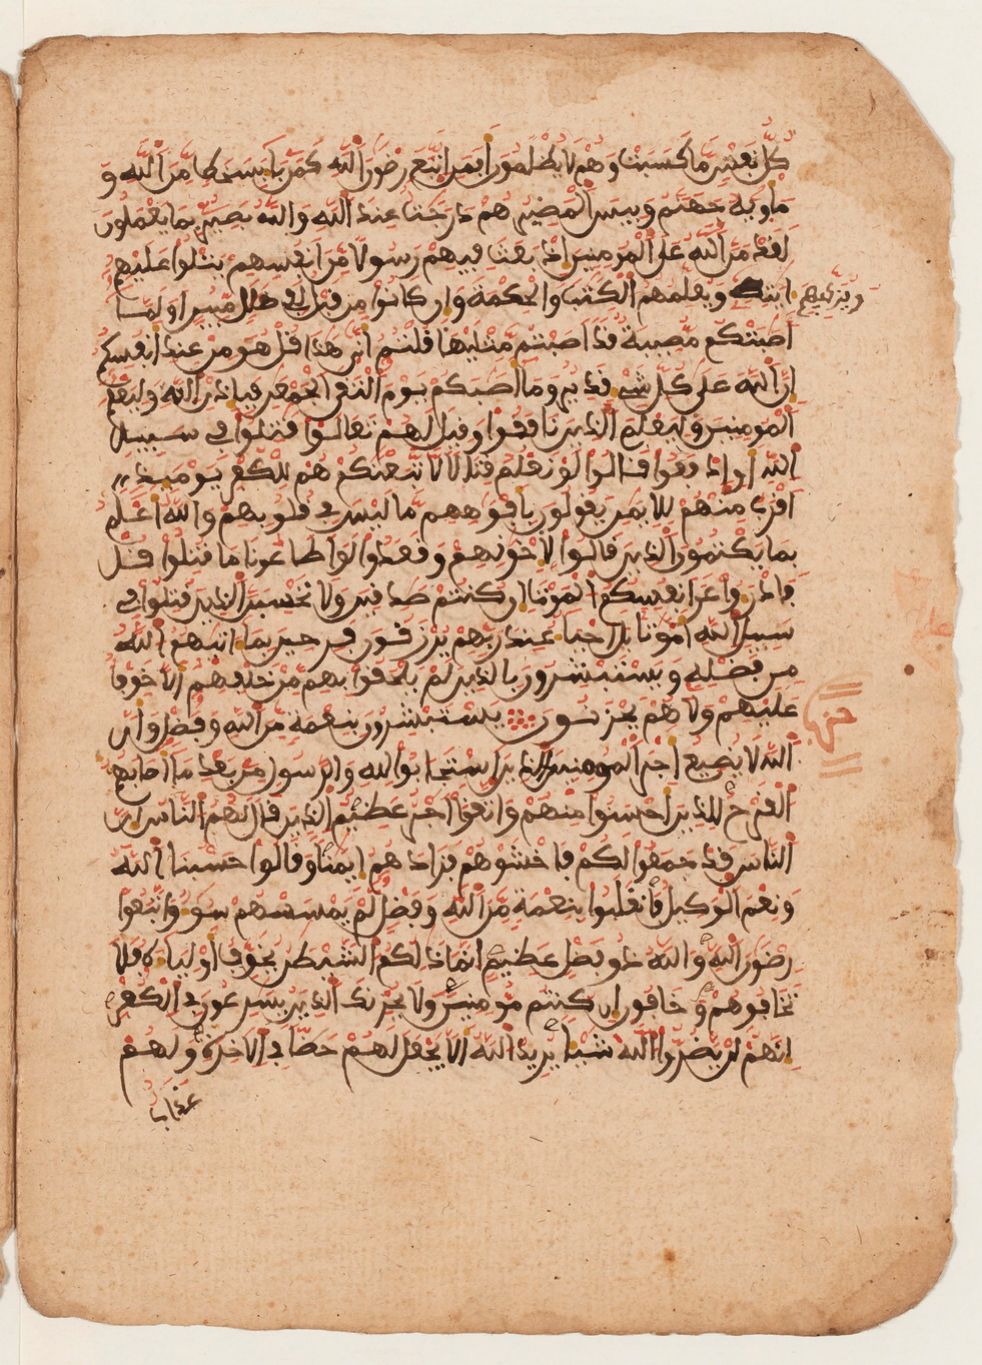 كل نفس ما كسبت وهم لا يظلمون افمن اتبع رضون الله كمن باء بسخط من الله و
ماويه جهنم وبيس المصير هم درجت عند الله والله بصير بما يعملون
لقد من الله على المومنين اذ بعث فيهم رسولا من انفسهم يتلوا عليهم
ءايته ويعلمهم الكتب والحكمة وان كانوا من قبل لفي ضلل مبين او لما
ويزكيهم
اصبتكم مصيبة قد اصبتم مثليها قلتم انى هذا قل هو من عند انفسكم
ان الله على كل شيء قدير وما اصبكم يوم التقى الجمعن فباذن الله وليعلم
المومنين وليعلم الذين نافقوا وقيل لهم تعالوا قتلوا في سبيل
الله او ادفعوا قالوا لو نعلم قتالا لاتبعنكم هم للكفر يوميذ
اقرب منهم للايمن يقولون بافوههم ما ليس في قلوبهم والله اعلم
بما يكتمون الذين قالوا لاخونهم وقعدوا لو اطاعونا ما قتلوا قل
فادرءوا عن انفسكم الموت ان كنتم صدقين ولا تحسبن الذين قتلوا في
سبيل الله اموتا بل احياء عند ربهم يرزقون فرحين بما اتيهم الله
من فضله ويستبشرون بالذين لم يلحقوا بهم من خلفهم الا خوف
عليهم ولا هم يحزنون يستبشرون بنعمة من الله وفضل وان
حزب
الله لا يضيع اجر المومنين الذين استجابوا لله والرسول من بعد ما اصابهم
القرح للذين احسنوا منهم واتقوا اجر عظيم الذين قال لهم الناس ان
الناس قد جمعوا لكم فاخشوهم فزادهم ايمنا وقالوا حسبنا الله
ونعم الوكيل فانقلبوا بنعمة من الله وفضل لم يمسسهم سوء واتبعوا
رضون الله والله ذو فضل عظيم انما ذلكم الشيطن يخوف اولياءه فلا
تخافوهم وخافون ان كنتم مومنين ولا يحزنك الذين يسرعون في الكفر
انهم لن يضروا الله شيا يريد الله الا يجعل لهم حضا في الاخرة ولهم
عذاب